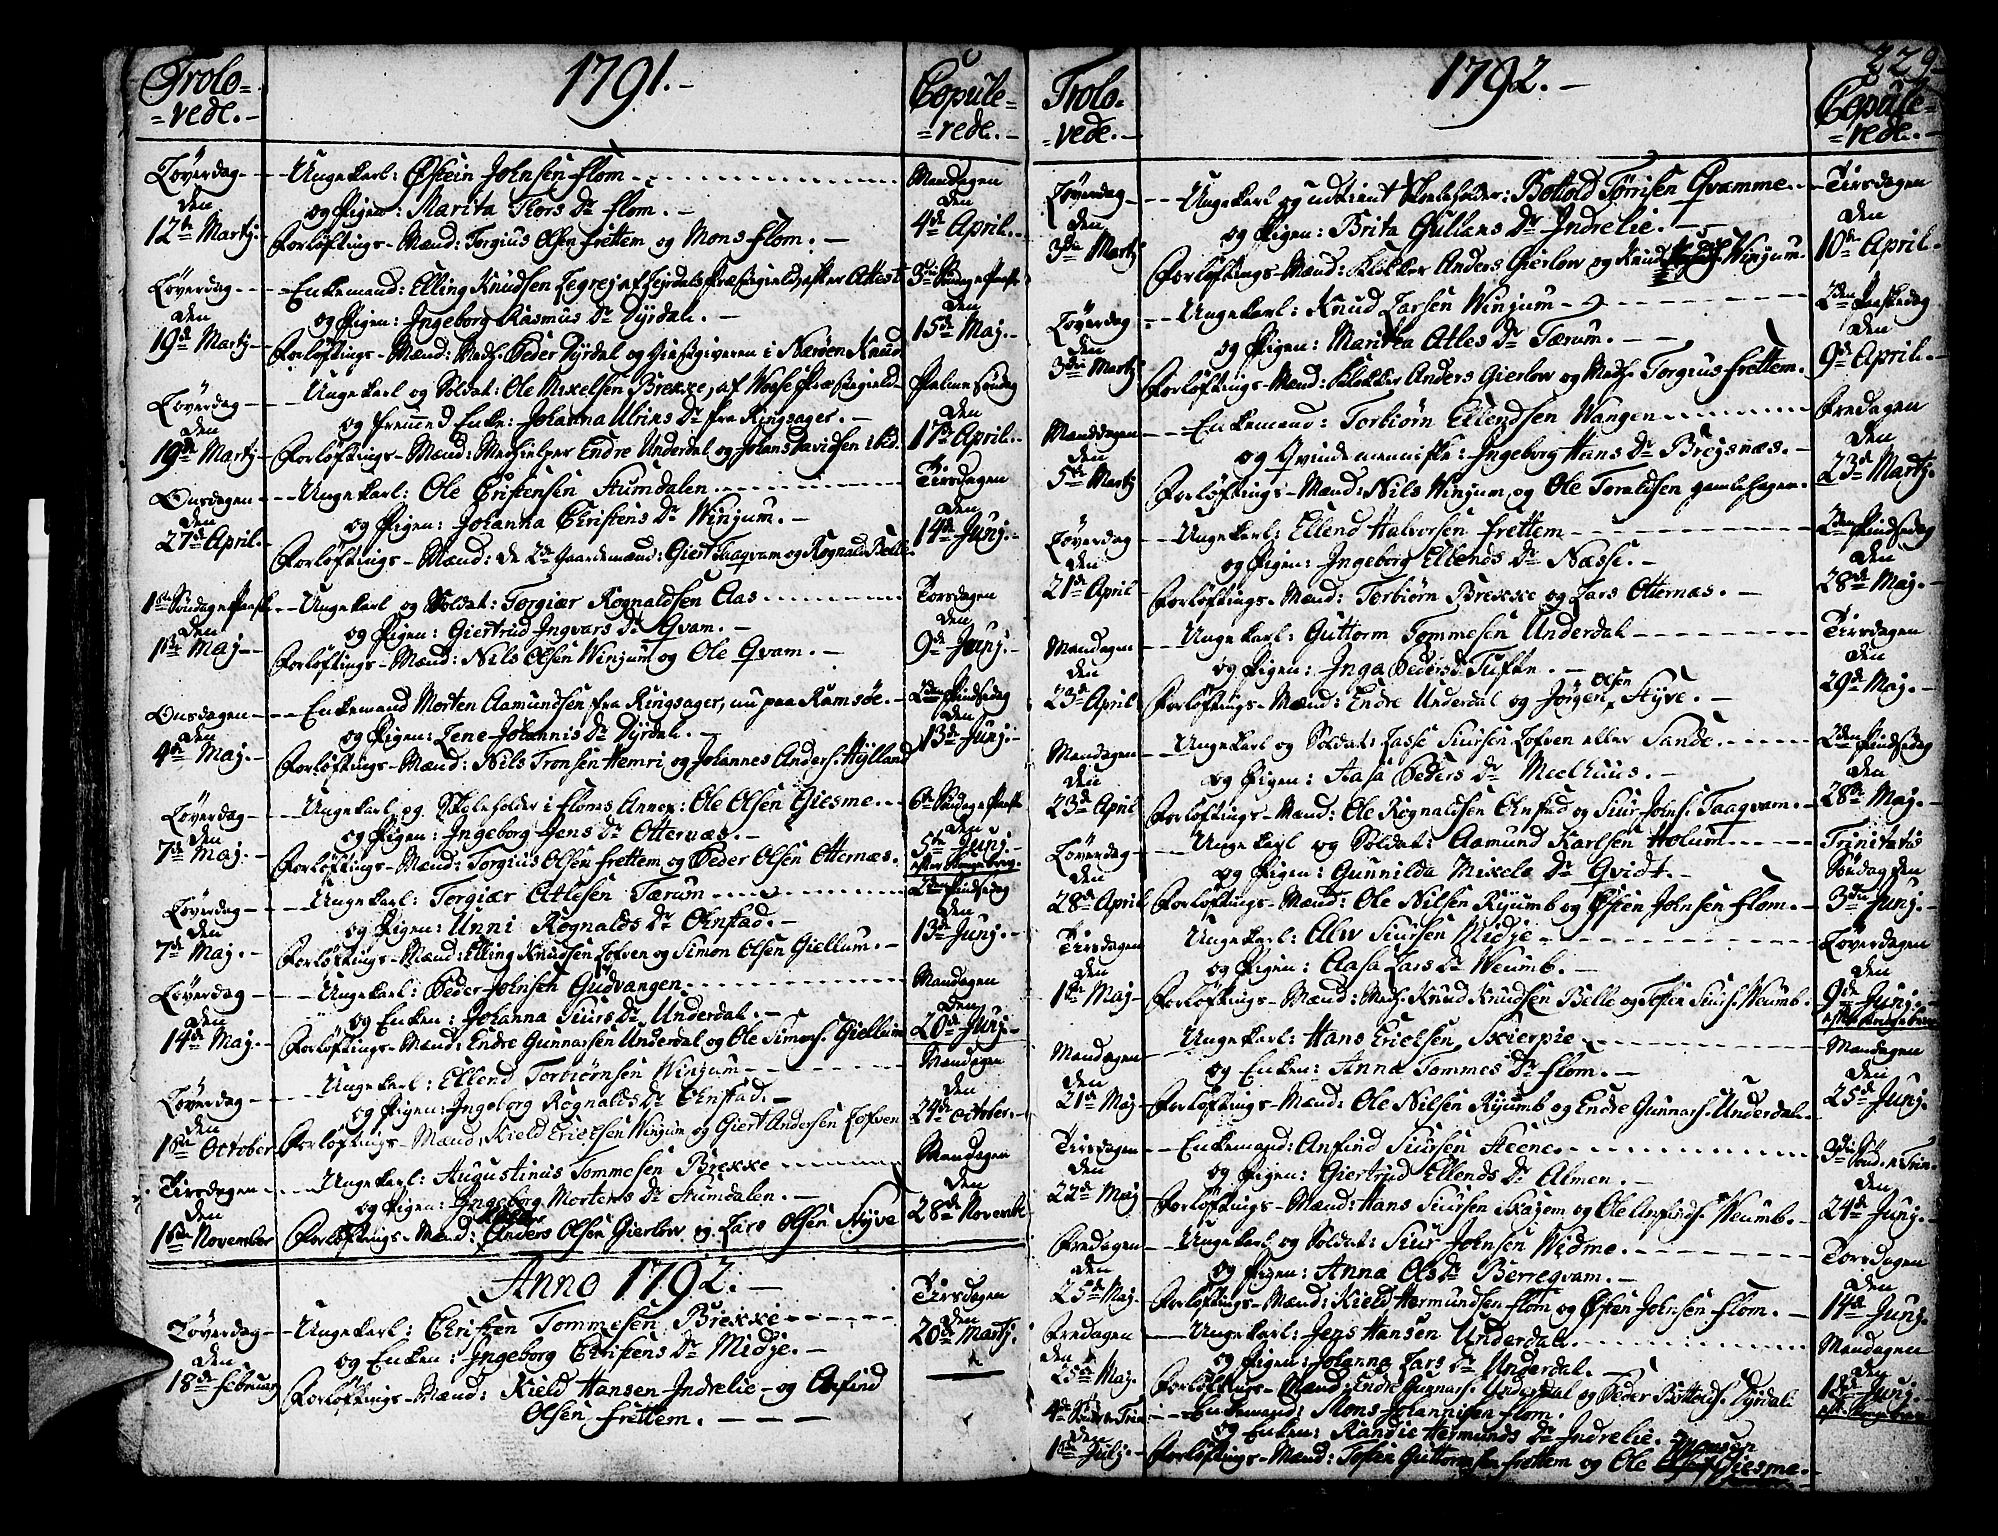 Trolo-
=vede.-
1791.-
Copule-
=rede.-
Løverdag
den
12te Martj
Ungekarl: Østein Johnsen Flom
og Pigen: Marita Thors Dr Flom.-
Forløftings-Mænd: Torgius Olsen Frettem og Mons Flom.-
Mandagen
den
4de April.-
Løverdag
den
19de Martj
Enkemand: Elling Knudsen af Præstegield, efter Attest
og Pigen: Ingeborg Rasmus Dr Dyrdal.-
Forløftings-Mænd: Peder Dyrdal og i Nærøen Knud
3die Søndag e Paaske
den
15de Maj.-
Løverdag
den
19de Martj
Ungekarl og Soldat: Ole Mikelsen Brekke, af Præstegield
og Enke: Johanna Ulriks Dr fra Ringsager.-
Forløftings-Mænd: Medhielper Endre Underdal og Johan Davidsen ibid.
Palme Søndag
den
17de April.-
Onsdagen
den
27de April.-
Ungekarl: Ole Christensen Stumdalen
og Pigen: Johanna Christens Dr Winjum.-
Forløftings-Mænd: De 2de Gaardemænd: Giert Taaqvam og Rognald Belle
Tirsdagen
den
14de Junj.-
1ste Søndag e Paaske
den
1ste Maj
Ungekarl og Soldat: Torgiær Rognaldsen Aas
og Pigen: Giertrud Ingvars Dr Qvam.-
Forløftings-Mænd: Nils Olsen Winjum og Ole Qvam.-
Torsdagen
den
9de Junj.-
Onsdagen
den
4de Maj.-
Enkemand Morten Aamundsen fra Ringsager, nu paa Ramsøe.-
og Pigen: Lene Johannis Dr Dyrdal.-
Forløftings-Mænd: Nils Tronsen Hemri og Johannes Anders. Hylland
2den Pindsedag
den
13de Junj.-
Løverdag
den
7de Maj.
Ungekarl og Skoleholder i Floms Annex: Ole Olsen Giesme
og Pigen: Ingeborg Jens Dr Otternæs.-
Forløftings-Mænd: Torgius Olsen Frettem og Peder Olsen Otternæs.
6te Søndag e Paaske
den
5te Junj.-
Løverdag
den
7de Maj.-
Ungekarl: Torgiær Atlesen Tærum
og Pigen: Unni Rognalds Dr Onstad.-
Forløftings-Mænd: Elling Knudsen Lofven og Simon Olsen Giellum.-
2den Pindsedag
den
13de Junj.-
Løverdag
den
14de Maj.-
Ungekarl: Peder Johnsen Gudvangen
og Enken: Johanna Siurs Dr Underdal.-
Forløftings-Mænd: Endre Gunnarsen Underdal og Ole Simons. Giellum
Mandagen
den
20de Junj.-
Løverdag
den
1ste October
Ungekarl: Ellend Torbiørnsen Winjum
og Pigen: Ingeborg Rognalds Dr Onstad.-
Forløftings-Mænd: Kield Ericksen Winjum og Giert Andersen Lofven
Mandagen
den
24de October.-
Tirsdagen
den
1ste November
Ungekarl: Augustinus Tommesen Brekke
og Pigen: Ingeborg Mortens Dr Stumdalen.-
Forløftings-Mænd: Klokker Anders Olsen Gierlow og Lars Olsen Styve
Mandagen
den
28de Novembr
Anno 1792.-
Løverdag
den
18de Februarj
Ungekarl: Christen Tommesen Brekke
og Enken: Ingeborg Christens Dr Midje.-
Forløftings-Mænd: Kield Hansen Indrelie og Anfind
Olsen Frettem.-
Tirsdagen
den
20de Martj.
229
Trolo-
vede.-
1792.-
Copule-
=rede.-
Løverdag
den
3die Martj
Ungekarl og udtient Skoleholder: Botvold Tørrisen Qvamme.-
og Pigen: Brita Gullans Dr Indrelie.-
Forløftings-Mænd: Klokker Anders Gierlow og Knud Winjum.
Tirsdagen
den
10de April.-
Løverdag
den
3die Martj
Ungekarl: Knud Larsen Winjum
og Pigen: Maritta Atles Dr Tærum.-
Forløftings-Mænd: Klokker Anders Gierlow og Medh. Torgius Frettem.
2den Paaskedag
den
9de April.-
Manddagen
den
5te Martj
Enkemand: Torbiørn Ellendsen Wangen
og Qvindemenniske: Ingeborg Hans Dr Breysnæs.-
Forløftings-Mænd: Nils Winjum og Ole Toraldsen
Fredagen
den
23de Martj.
Løverdag
den
21de April
Ungekarl: Ellend Halvorsen Frettem
og Pigen: Ingeborg Ellends Dr Næsse.-
Forløftings-Mænd: Torbiørn Brekke og Lars Otternæs.-
2den Pindsedag
den
28de Maj.-
Mandagen
den
23de April
Ungekarl: Guttorm Tommesen Underdal
og Pigen: Inga Peders Dr Tufte.-
Forløftings-Mænd: Endre Underdal og Jørgen Olsen Styve.-
Tirsdagen
den
29de Maj.-
Mandagen
den
23de April
Ungekarl og Soldat: Lasse Siursen Lofven eller Sande.
og Pigen: Aasa Peders Dr Meelhuus.-
Forløftings-Mænd: Ole Rognaldsen Onstad og Siur Johns. Taaqvam.
2den Pindsedag
den
28de Maj.-
Løverdag
den
28de April
Ungekarl og Soldat: Aamund Karlsen Holum
og Pigen: Gunnilda Mikels Dr Qvidt.-
Forløftings-Mænd: Ole Nilsen Ryumb og Østen Johnsen Flom.-
Trinitatis
Søndag den
3die Junj.-
Tirsdagen
den
1ste Maj
Ungekarl: Alw Siursen Midje
og Pigen: Aasa Lars Dr Weumb.-
Forløftings-Mænd: Medh. Knud Knudsen Belle og Tosten Siurs. Weumb.
Løverdagen
den
9de Junj.-
Mandagen
den
21de Maj
Ungekarl: Hans Ericksen Skierpie
og Enken: Anna Tommes Dr Flom.-
Forløftings-Mænd: Ole Nilsen Ryumb og Endre Gunnars. Underdal.
Mandagen
den
25de Junj.
Tirsdagen
den
22de Maj
Enkemand: Anfind Siursen Steene
og Pigen: Giertrud Ellends Dr Almen.-
Forløftings-Mænd: Hans Siursen Skajem og Ole Anfinds. Weumb.-
3die Sønd. e Trin.
den
24de Junj.-
Fredagen
den
25de Maj.
Ungekarl og Soldat: Siur Johnsen Widme.
og Pigen: Anna Ols Dr Berreqvam.-
Forløftings-Mænd: Kield Hermundsen Flom og Østen Johnsen Flom.-
Torsdagen
den
14de Junj.
Fredagen
den
25de Maj.
Ungekarl: Jens Hansen Underdal
og Pigen: Johanna Lars Dr Underdal.-
Forløftings-Mænd: Endre Gunnars. Underdal og Peder Botolds. Dyrdal
Mandagen
den
18de Junj.
4de Sønd. e Trin
den
1ste Julj.
Enkemand: Mons Johannisen Flom.
og Enken: Randie Hermunds Dr Indrelie.
Forløftings-Mænd: Tosten Guttormsen Frettem og Ole Monsen Giesme.-